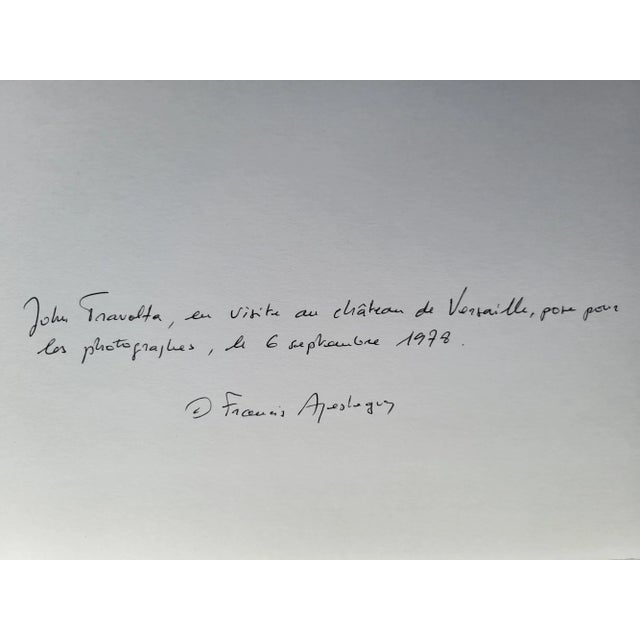 John Travolta, en visite au château de Versaille, pose pour
les photographes, le 6 septembre 1978.
© Francis Apesteguy